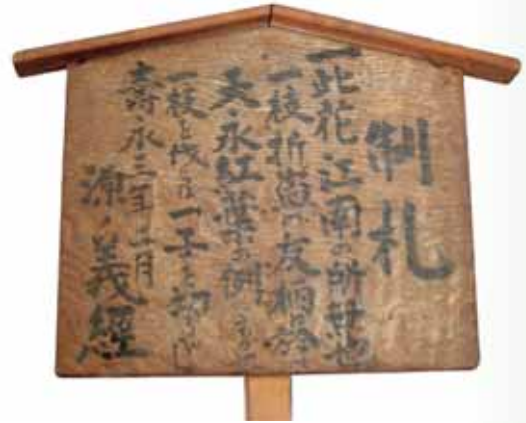 制札
一此花江南の所無也
一枝折盗の友柄於ハ
天永紅葉の例にまかせ
一枝を伐らは一子を切るへし
壽永三年二月
源ノ義經